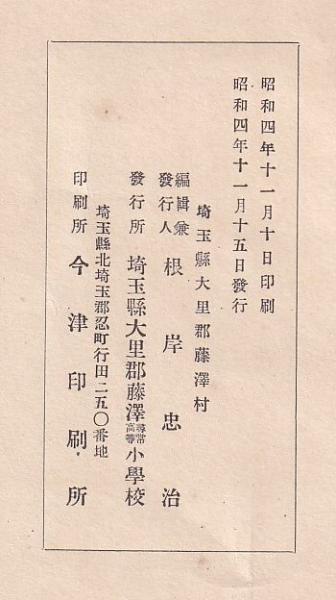 昭和四年十一月十日印刷
昭和四年十一月十五日發行
埼玉縣大里郡藤澤村
編輯兼發行人 根岸忠治
發行所 埼玉縣大里郡藤澤尋常高等小學校
埼玉縣北埼玉郡忍町行田二五〇番地
印刷所 今津印刷所